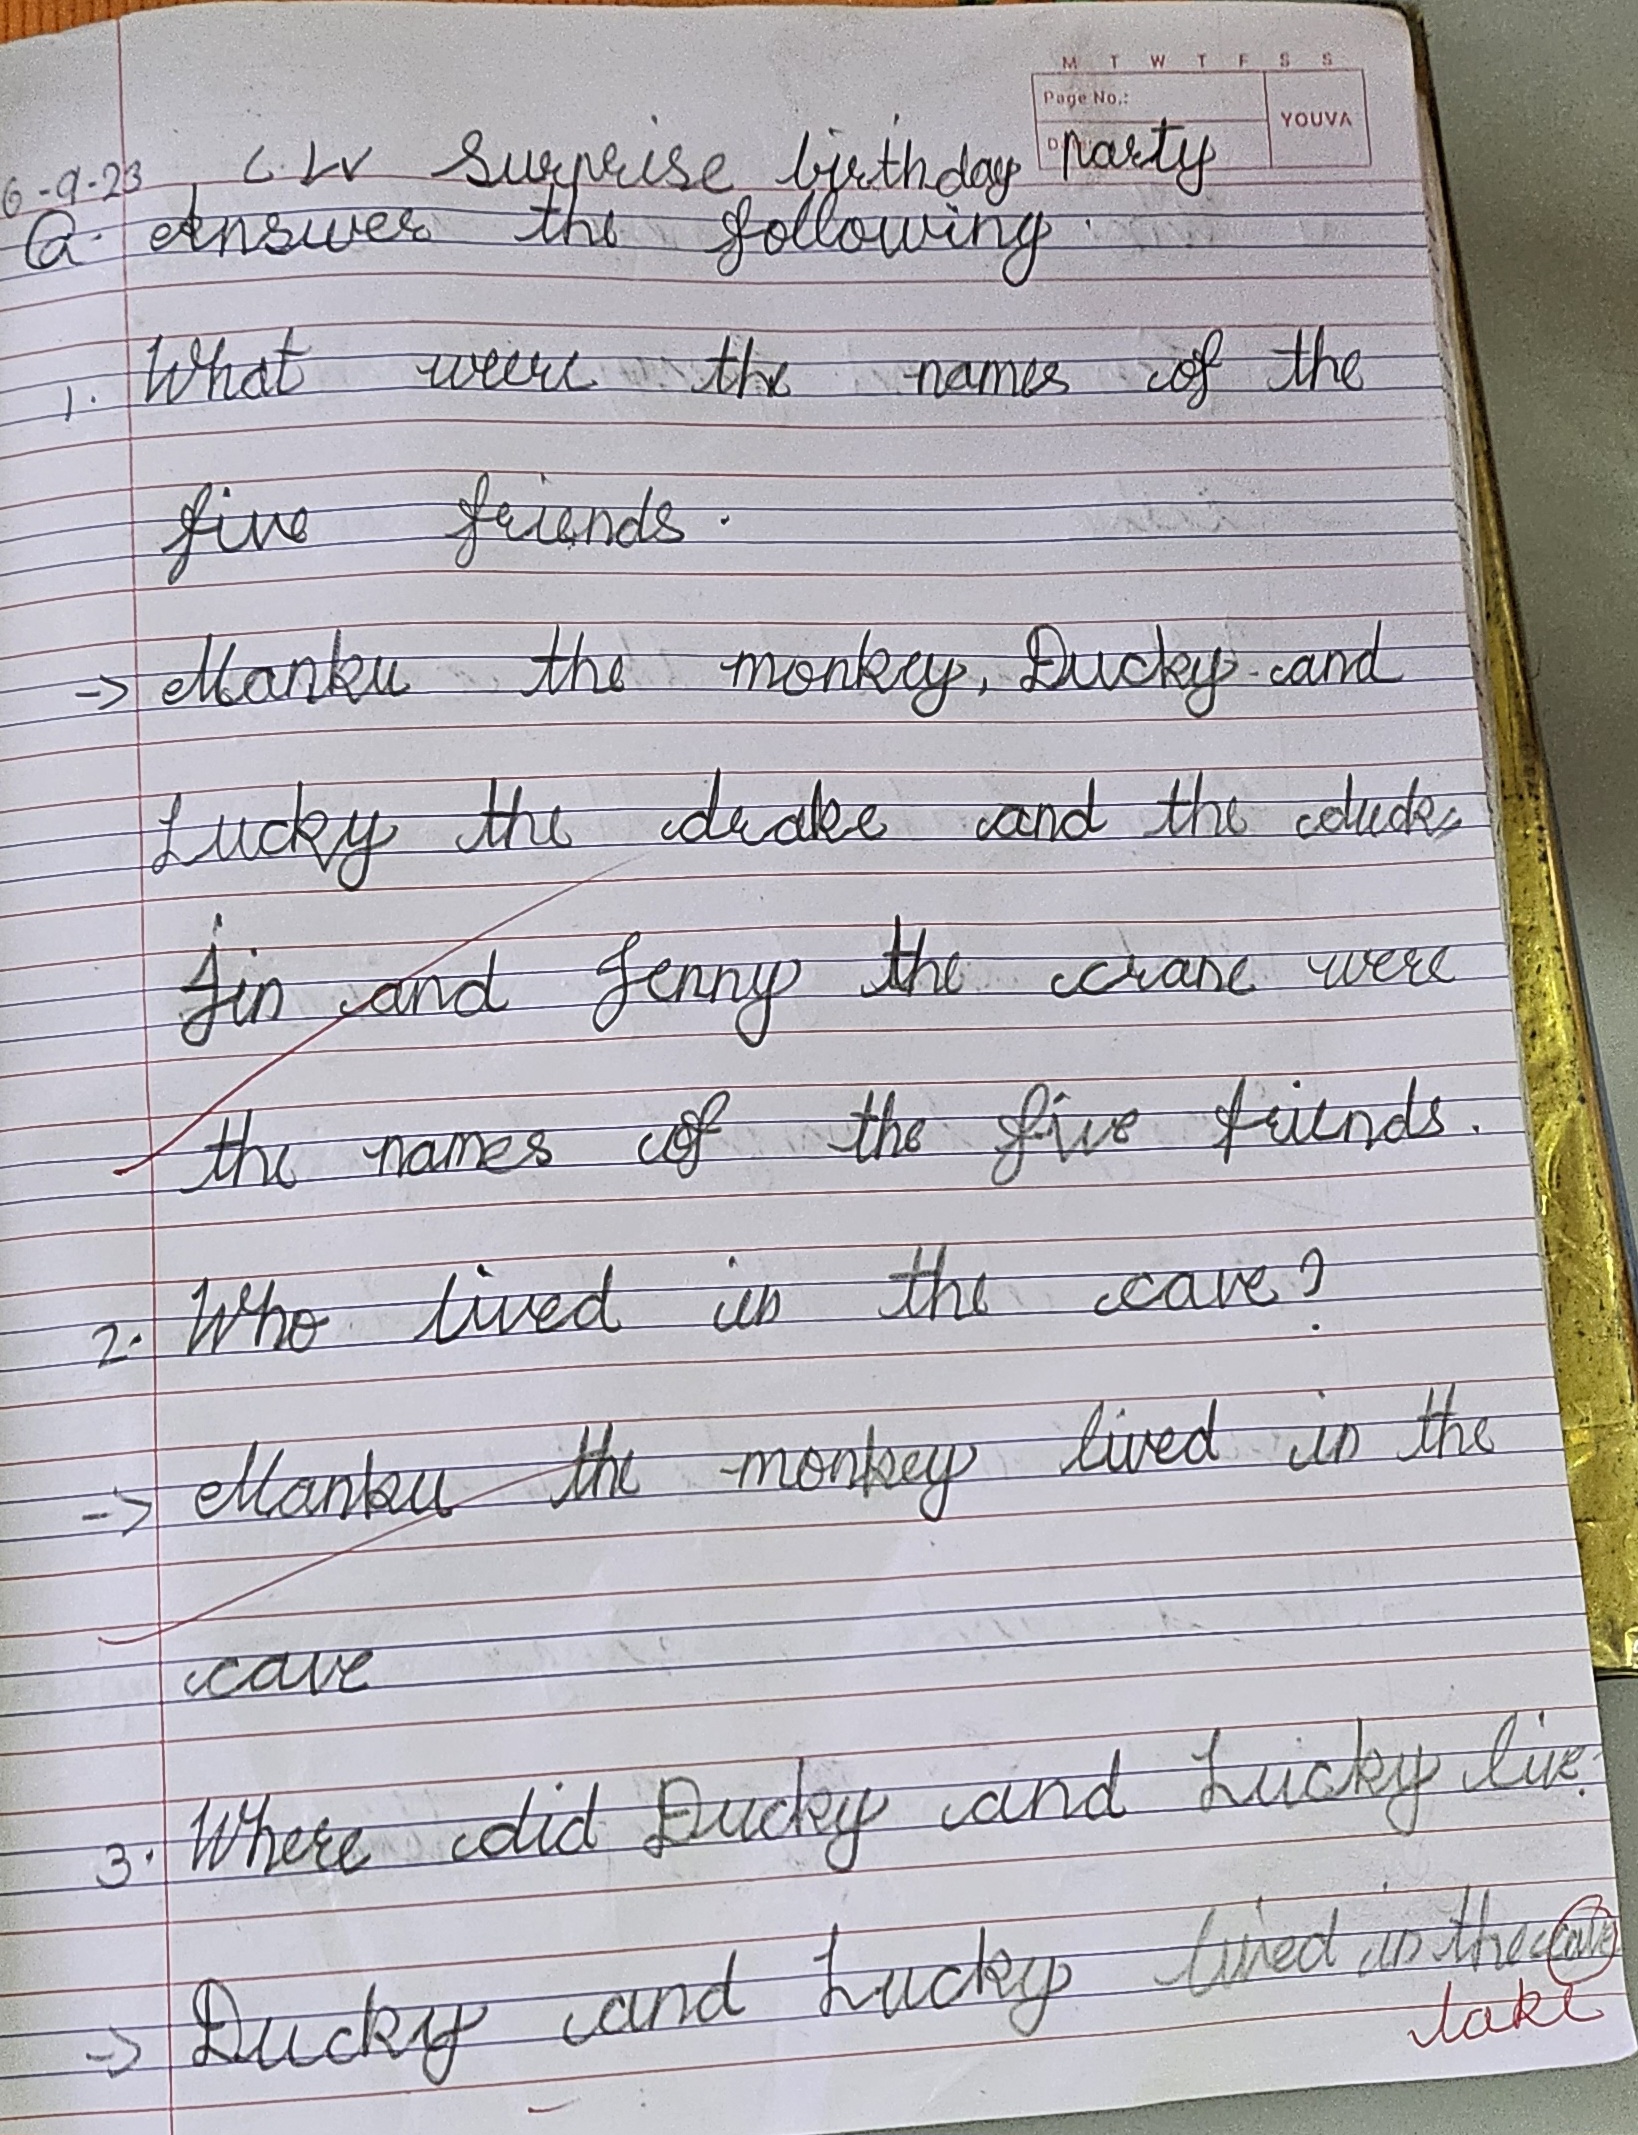 M T W T F S S
Page No.:
YOUVA
6-9-23 C.W Surprise birthday party
Q. Answer the following.
1. What were the names of the
five friends.
-> Manku the monkey, Ducky and
Lucky the drake and the duck,
Jin and Jenny the crane were
the names of the five friends.
2. Who lived in the cave?
-> Manku the monkey lived in the
cave
3. Where did Ducky and Lucky live?
-> Ducky and Lucky lived in the cave
lake